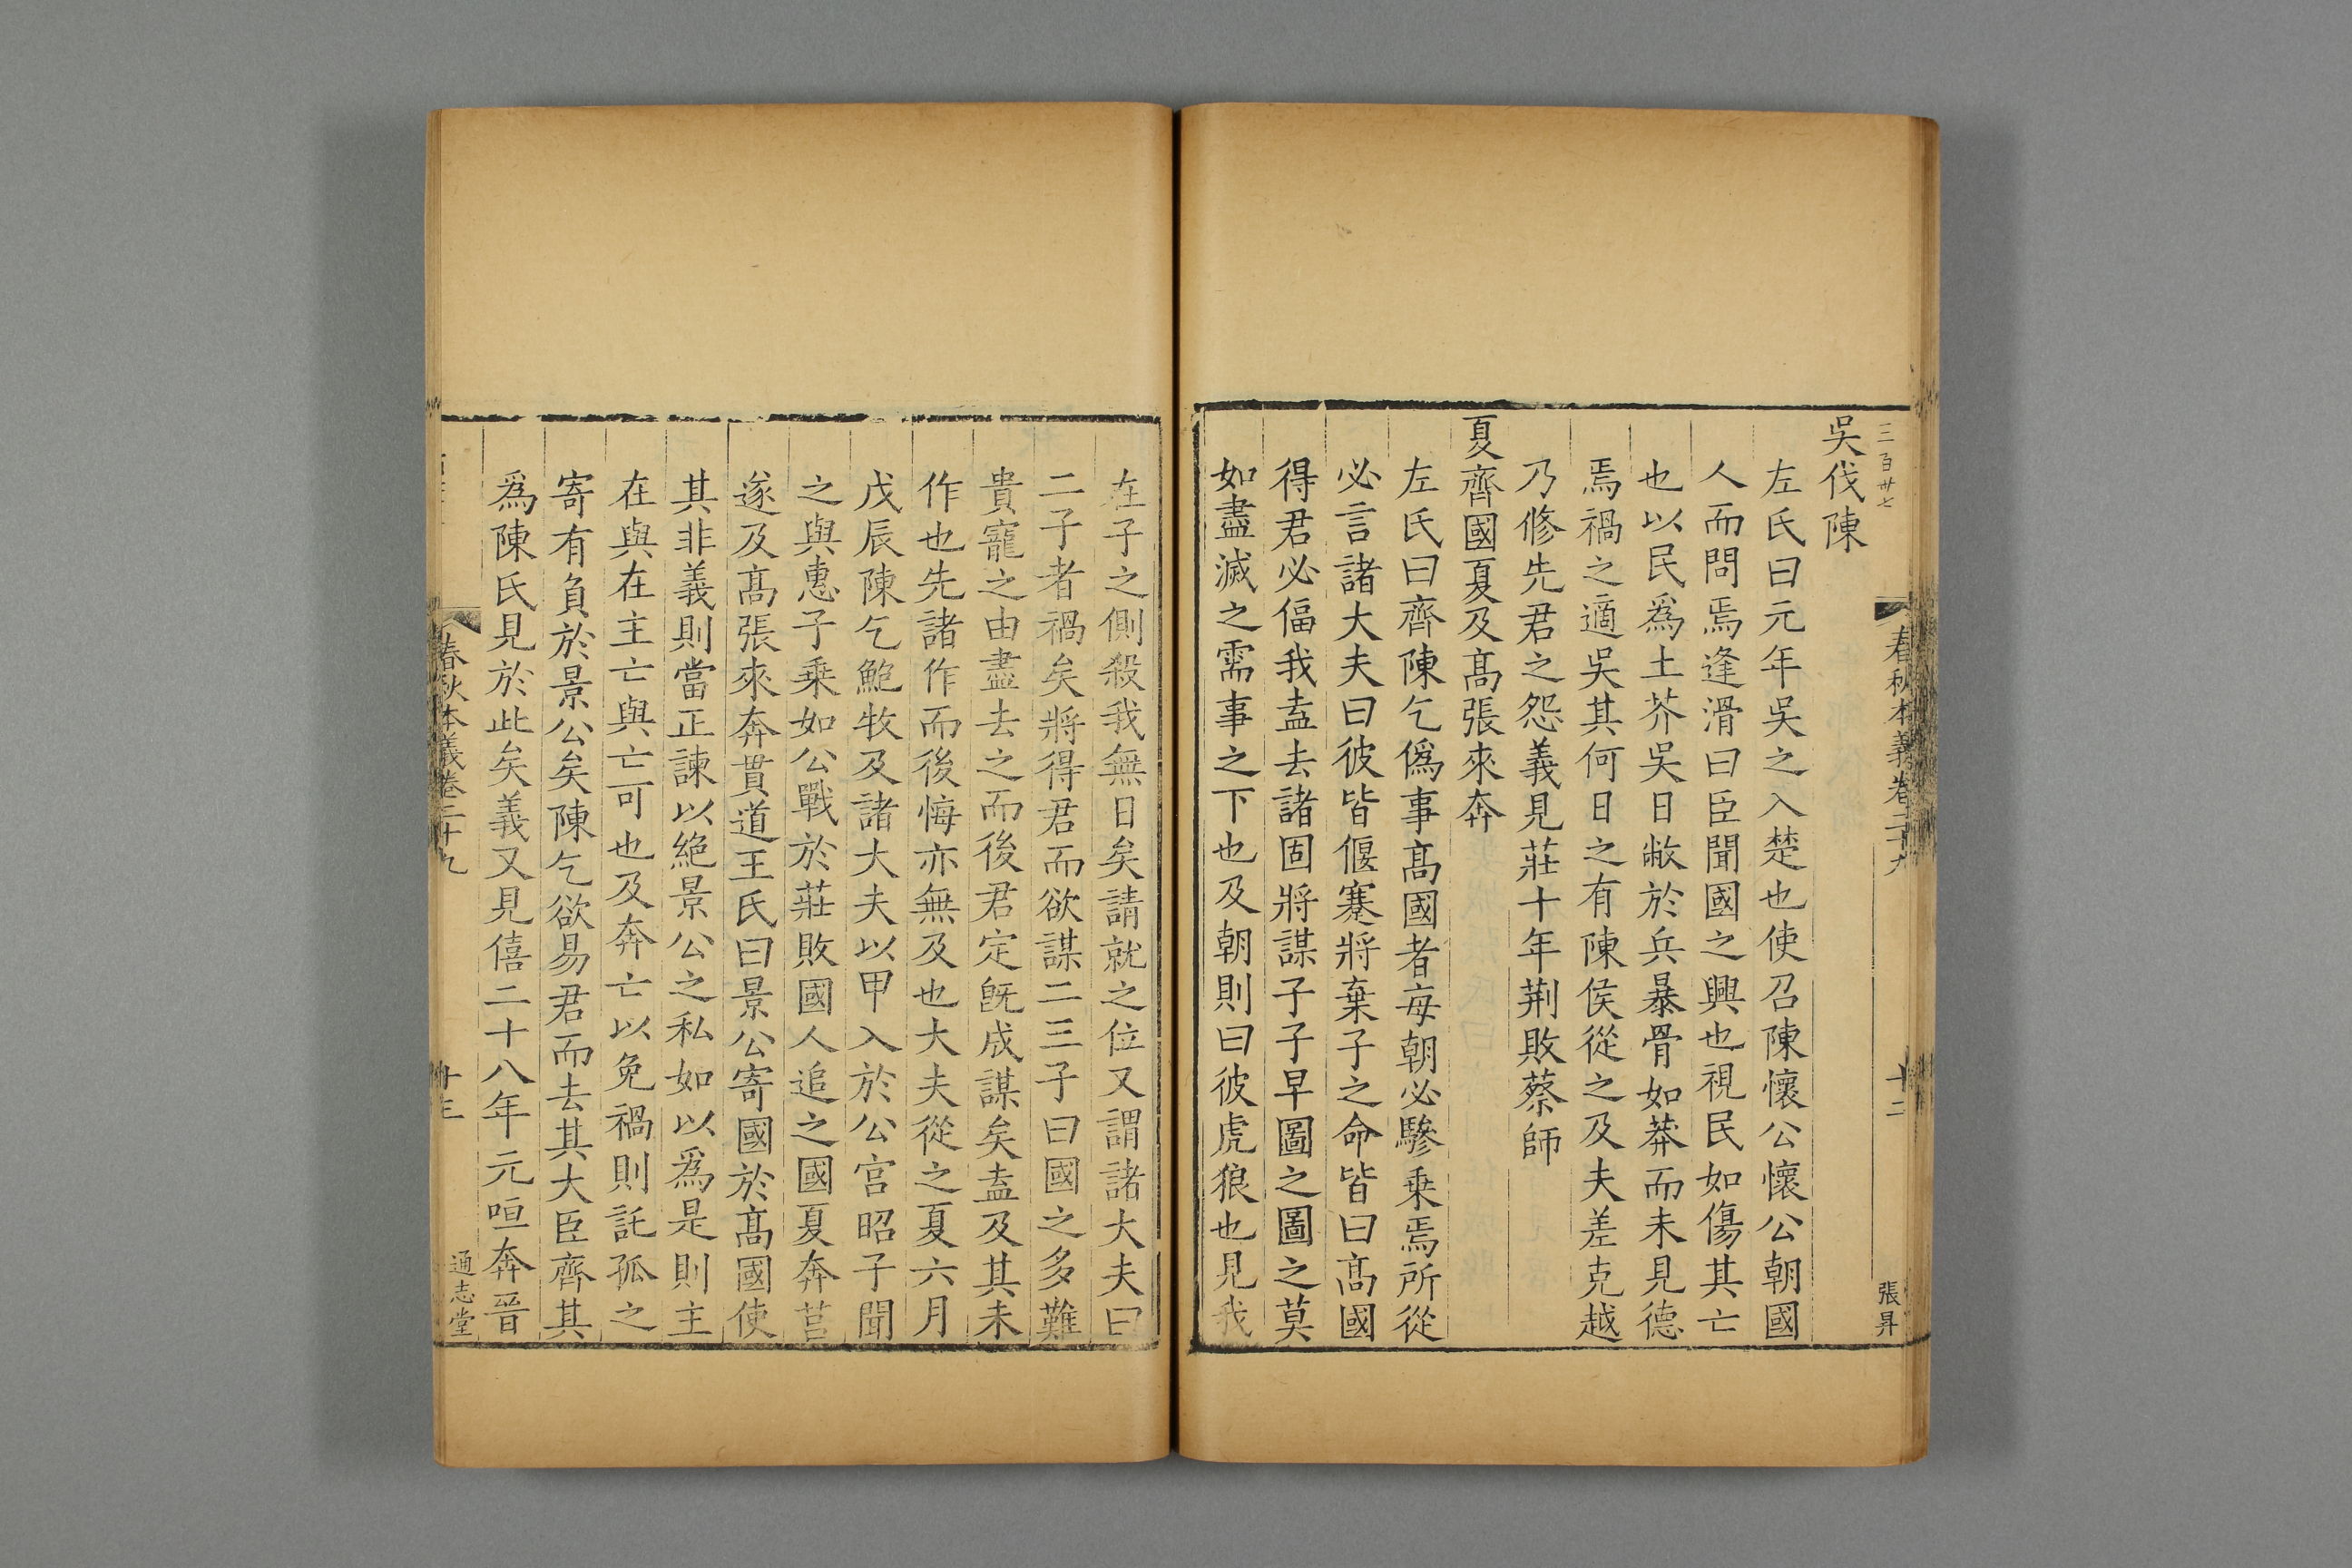 三百廿七
春秋本義卷二十九
十二
張昇
吳伐陳
左氏曰元年吳之入楚也使召陳懷公懷公朝國
人而問焉逢滑曰臣聞國之興也視民如傷其亡
也以民爲土芥吳日敝於兵暴骨如莽而未見德
焉禍之適吳其何日之有陳侯從之及夫差克越
乃修先君之怨義見莊十年荆敗蔡師
夏齊國夏及髙張來奔
左氏曰齊陳乞僞事髙國者每朝必驂乗焉所從
必言諸大夫曰彼皆偃蹇將棄子之命皆曰髙國
得君必偪我盍去諸固將謀子子早圖之圖之莫
如盡滅之需事之下也及朝則曰彼虎狼也見我
在子之側殺我無日矣請就之位又謂諸大夫曰
二子者禍矣將得君而欲謀二三子曰國之多難
貴寵之由盡去之而後君定旣成謀矣盍及其未
作也先諸作而後悔亦無及也大夫從之夏六月
戊辰陳乞鮑牧及諸大夫以甲入於公宮昭子聞
之與惠子乗如公戰於莊敗國人追之國夏奔莒
遂及髙張來奔貫道王氏曰景公寄國於髙國使
其非義則當正諫以絕景公之私如以爲是則主
在與在主亡與亡可也及奔亡以免禍則託孤之
寄有負於景公矣陳乞欲易君而去其大臣齊其
爲陳氏見於此矣義又見僖二十八年元咺奔晉
春秋本義卷二十九
十三
通志堂